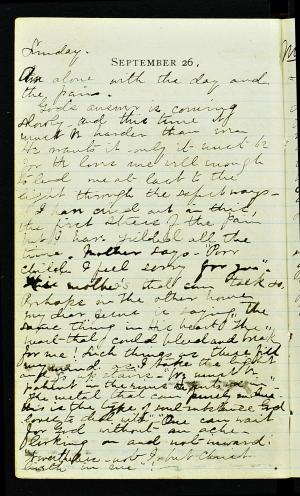 Sunday.
SEPTEMBER 26.
Am alone with the day and
the pain.
God's answer is coming
slowly and this time it
must be harder than ever
He wants it only it must be
for He loves me well enough
to lead me at last to the
light through the safest ways –
I have cried out in this,
the first stress of the pain
but I have yielded all the
time. Mother says – "Poor
child I feel sorry for you".
mother's that can talk so.
Perhaps in the other home
my dear is saying "the
same thing in His heart, the
heart that could bleed and break
for me! Such things as these fill
my mind as I take the
patient in the
the metal that can
this is the type of God
loves to deal with" "One can wait
for God without an ache,
looking on and not inward.
Nevertheless – not I but Christ
liveth in me"